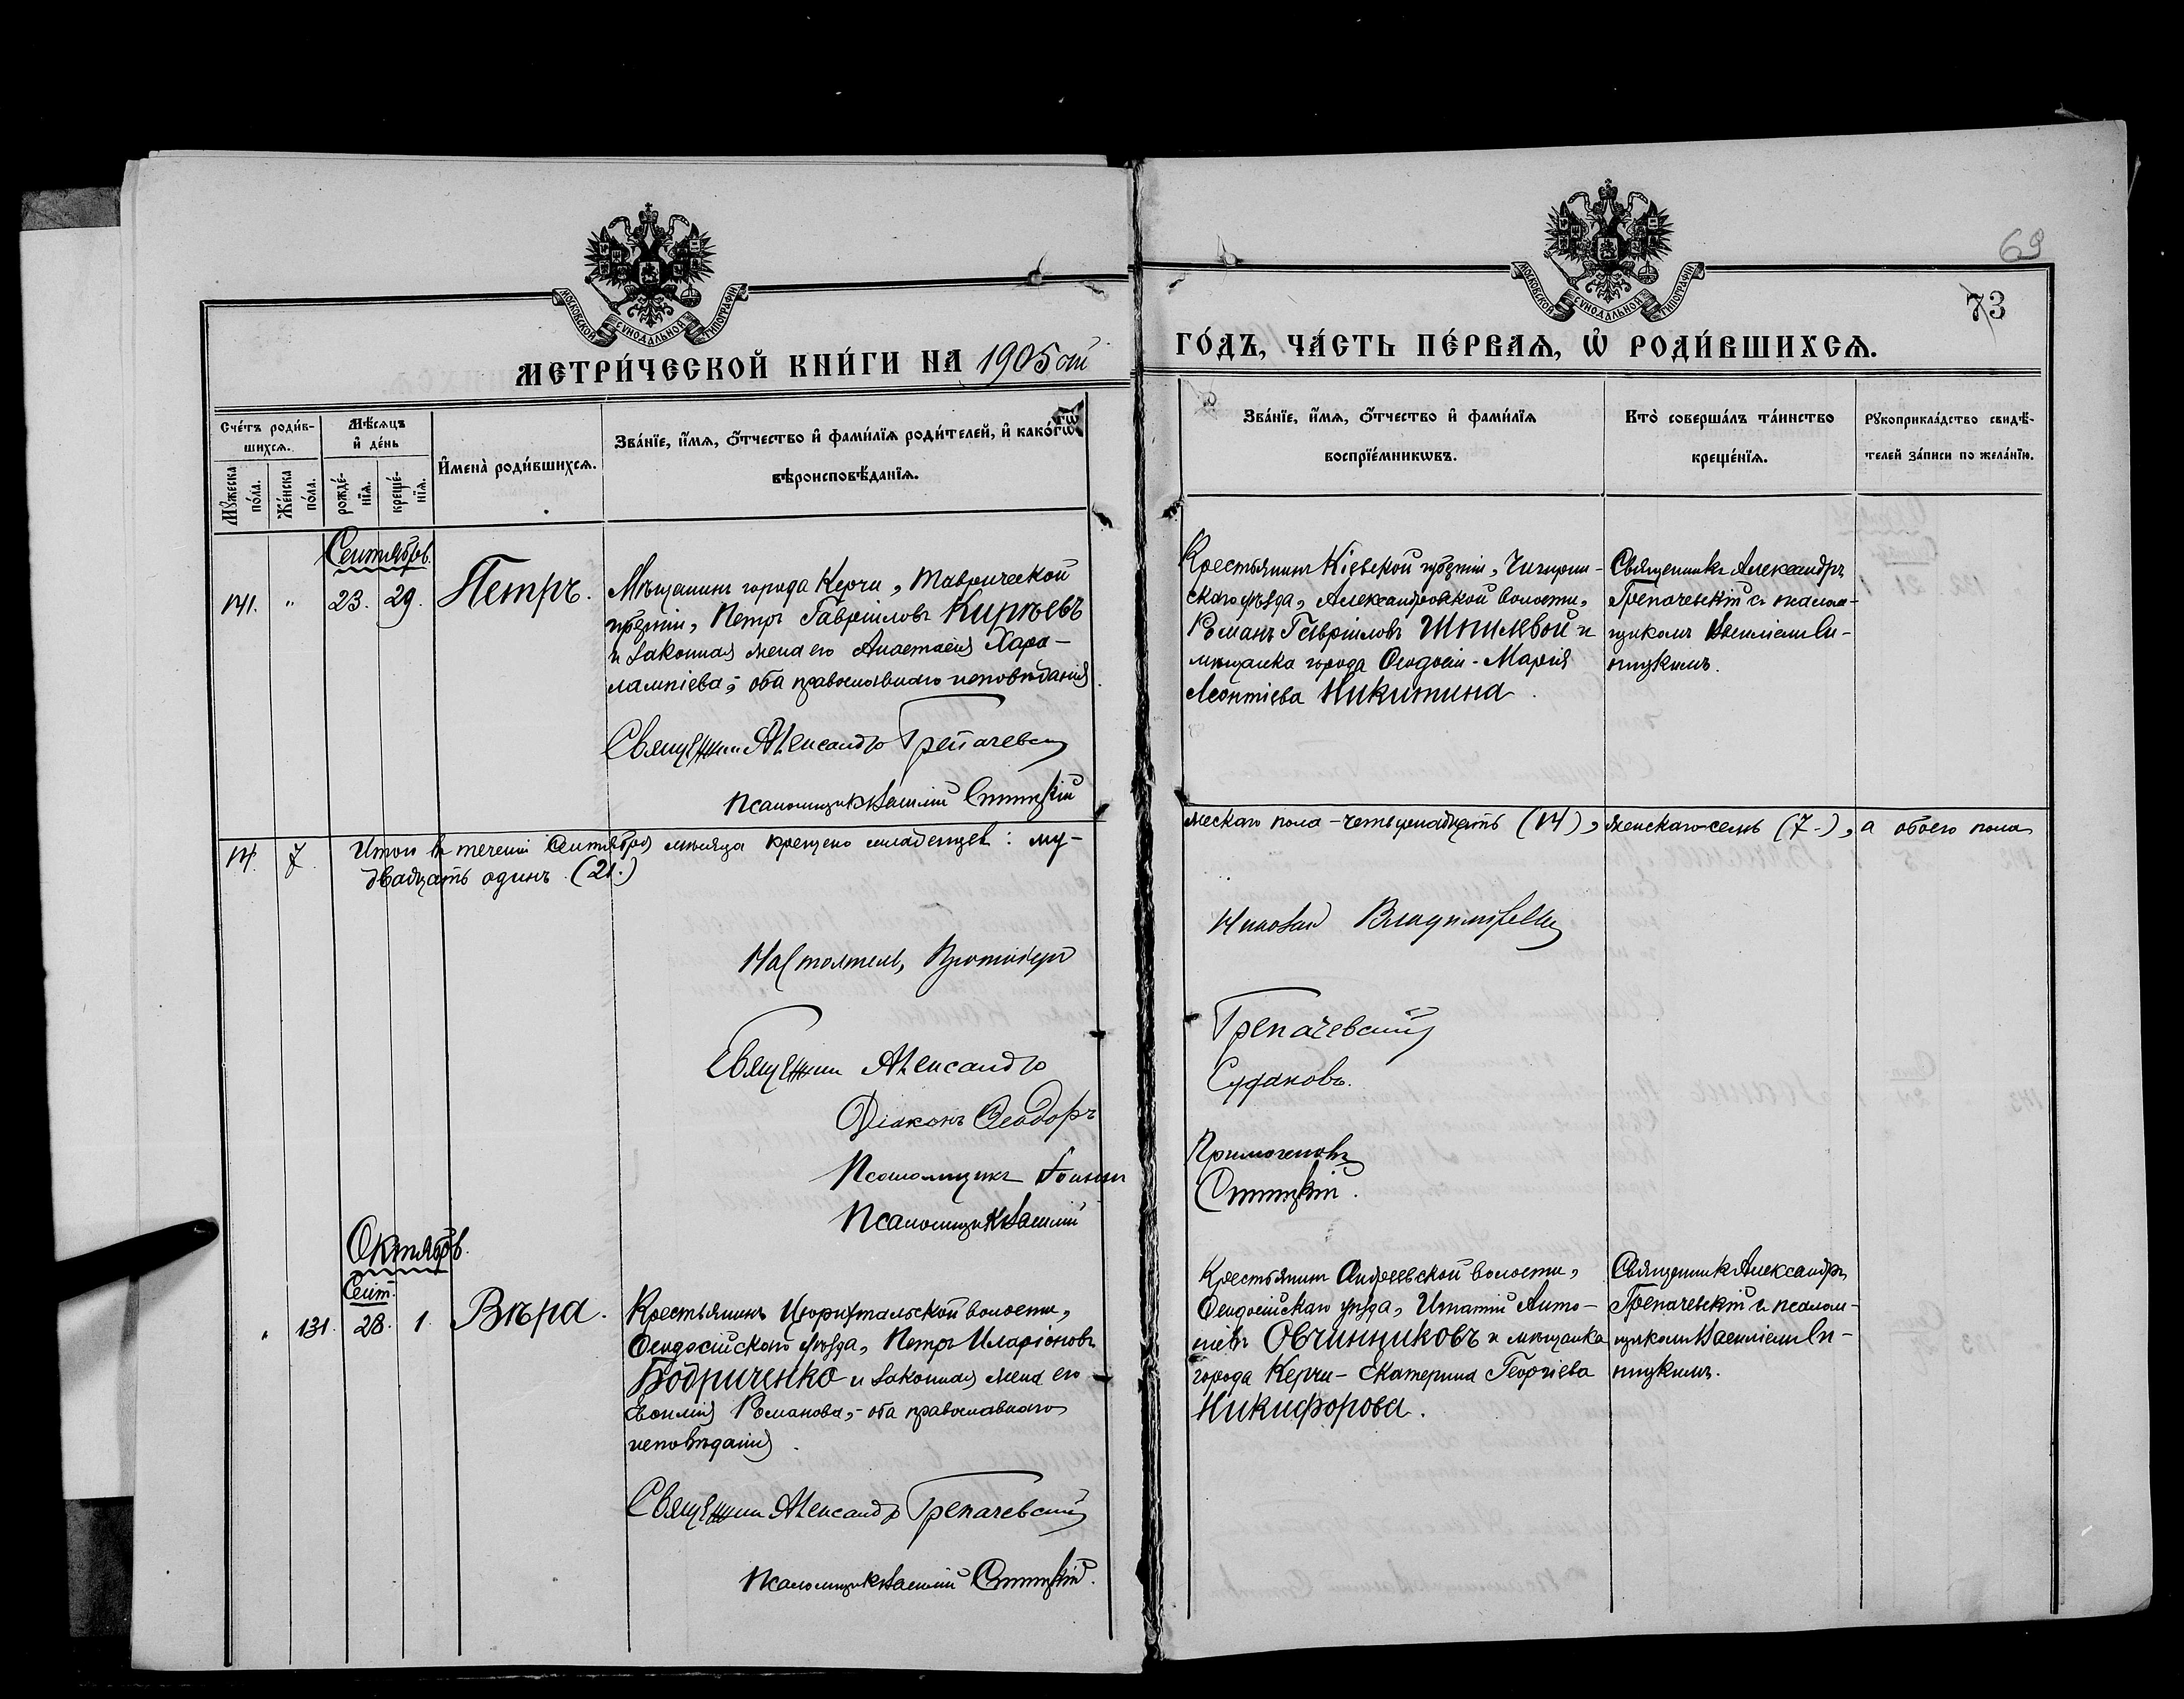 69
73
МОСКОВСКОЙ СѴНОДАЛЬНОЙ ТИПОГРАФІИ
МОСКОВСКОЙ СѴНОДАЛЬНОЙ ТИПОГРАФІИ
МЕТРИ́ЧЕСКОЙ КНИ́ГИ НА 1905 ой
ГО́ДЪ, ЧА́СТЬ ПЕ́РВАѦ, Ѡ҆ РОДИ́ВШИХСѦ.
Сче́тъ роди́в-
шихсѧ.
Мꙋ́жеска по́ла.
Же́нска по́ла.
Мѣ́сѧцъ
и҆ де́нь
рожде́-
нїѧ.
креще́-
нїѧ.
И҆мена̀ роди́вшихсѧ.
Зва́нїе, и҆́мѧ, ѻ҆́тчество и҆ фами́лїѧ роди́телей, и҆ како́гѡ
вѣроисповѣ́данїѧ.
Зва́нїе, и҆́мѧ, ѻ҆́тчество и҆ фами́лїѧ
воспрїе́мникѡвъ.
Кто̀ соверша́лъ та́инство
креще́нїѧ.
Рꙋкоприкла́дство свидѣ́-
телей за́писи по жела́нїю.
Сентябрь.
141. " 23. 29. Петръ.
Мѣщанинъ города Керчи, Таврической
губерніи, Петръ Гавріиловъ Кирѣевъ
и законная жена его Анастасія Хара-
лампіева; оба православнаго исповѣданія.
Священникъ Александръ Грепачевскій
Псаломщикъ Василій Синицкій
Крестьянинъ Кіевской губерніи, Чигирин-
скаго уѣзда, Александровской волости,
Романъ Гавріиловъ Шпилевой и
мѣщанка города Ѳеодосіи - Марія
Леонтіева Никитина.
Священникъ Александръ
Грепачевскій съ псалом-
щикомъ Василіемъ Си-
ницкимъ.
14. 7. Итого въ теченіи Сентября мѣсяца крещено младенцевъ: му-
жескаго пола - четырнадцать (14), женскаго - семь (7.), а обоего пола
двадцать одинъ (21.)
Настоятель, Протоіерей
Николай Владимірскій
Священникъ Александръ
Грепачевскій
Діаконъ Ѳеодоръ
Судаковъ.
Псаломщикъ Іоаннъ
Примогеновъ
Псаломщикъ Василій
Синицкій.
Октябрь.
Сент.
" 131. 28. 1. Вѣра.
Крестьянинъ Цюрихтальской волости,
Ѳеодосійскаго уѣзда, Петръ Иларіоновъ
Бодриченко и законная жена его
Романова, - оба православнаго
исповѣданія.
Священникъ Александръ Грепачевскій
Псаломщикъ Василій Синицкій.
Крестьянинъ Андреевской волости,
Ѳеодосійскаго уѣзда, Игнатій Анто-
невъ Овчинниковъ и мѣщанка
города Керчи - Екатерина Георгіева
Никифорова.
Священникъ Александръ
Грепачевскій съ псалом-
щикомъ Василіемъ Си-
ницкимъ.